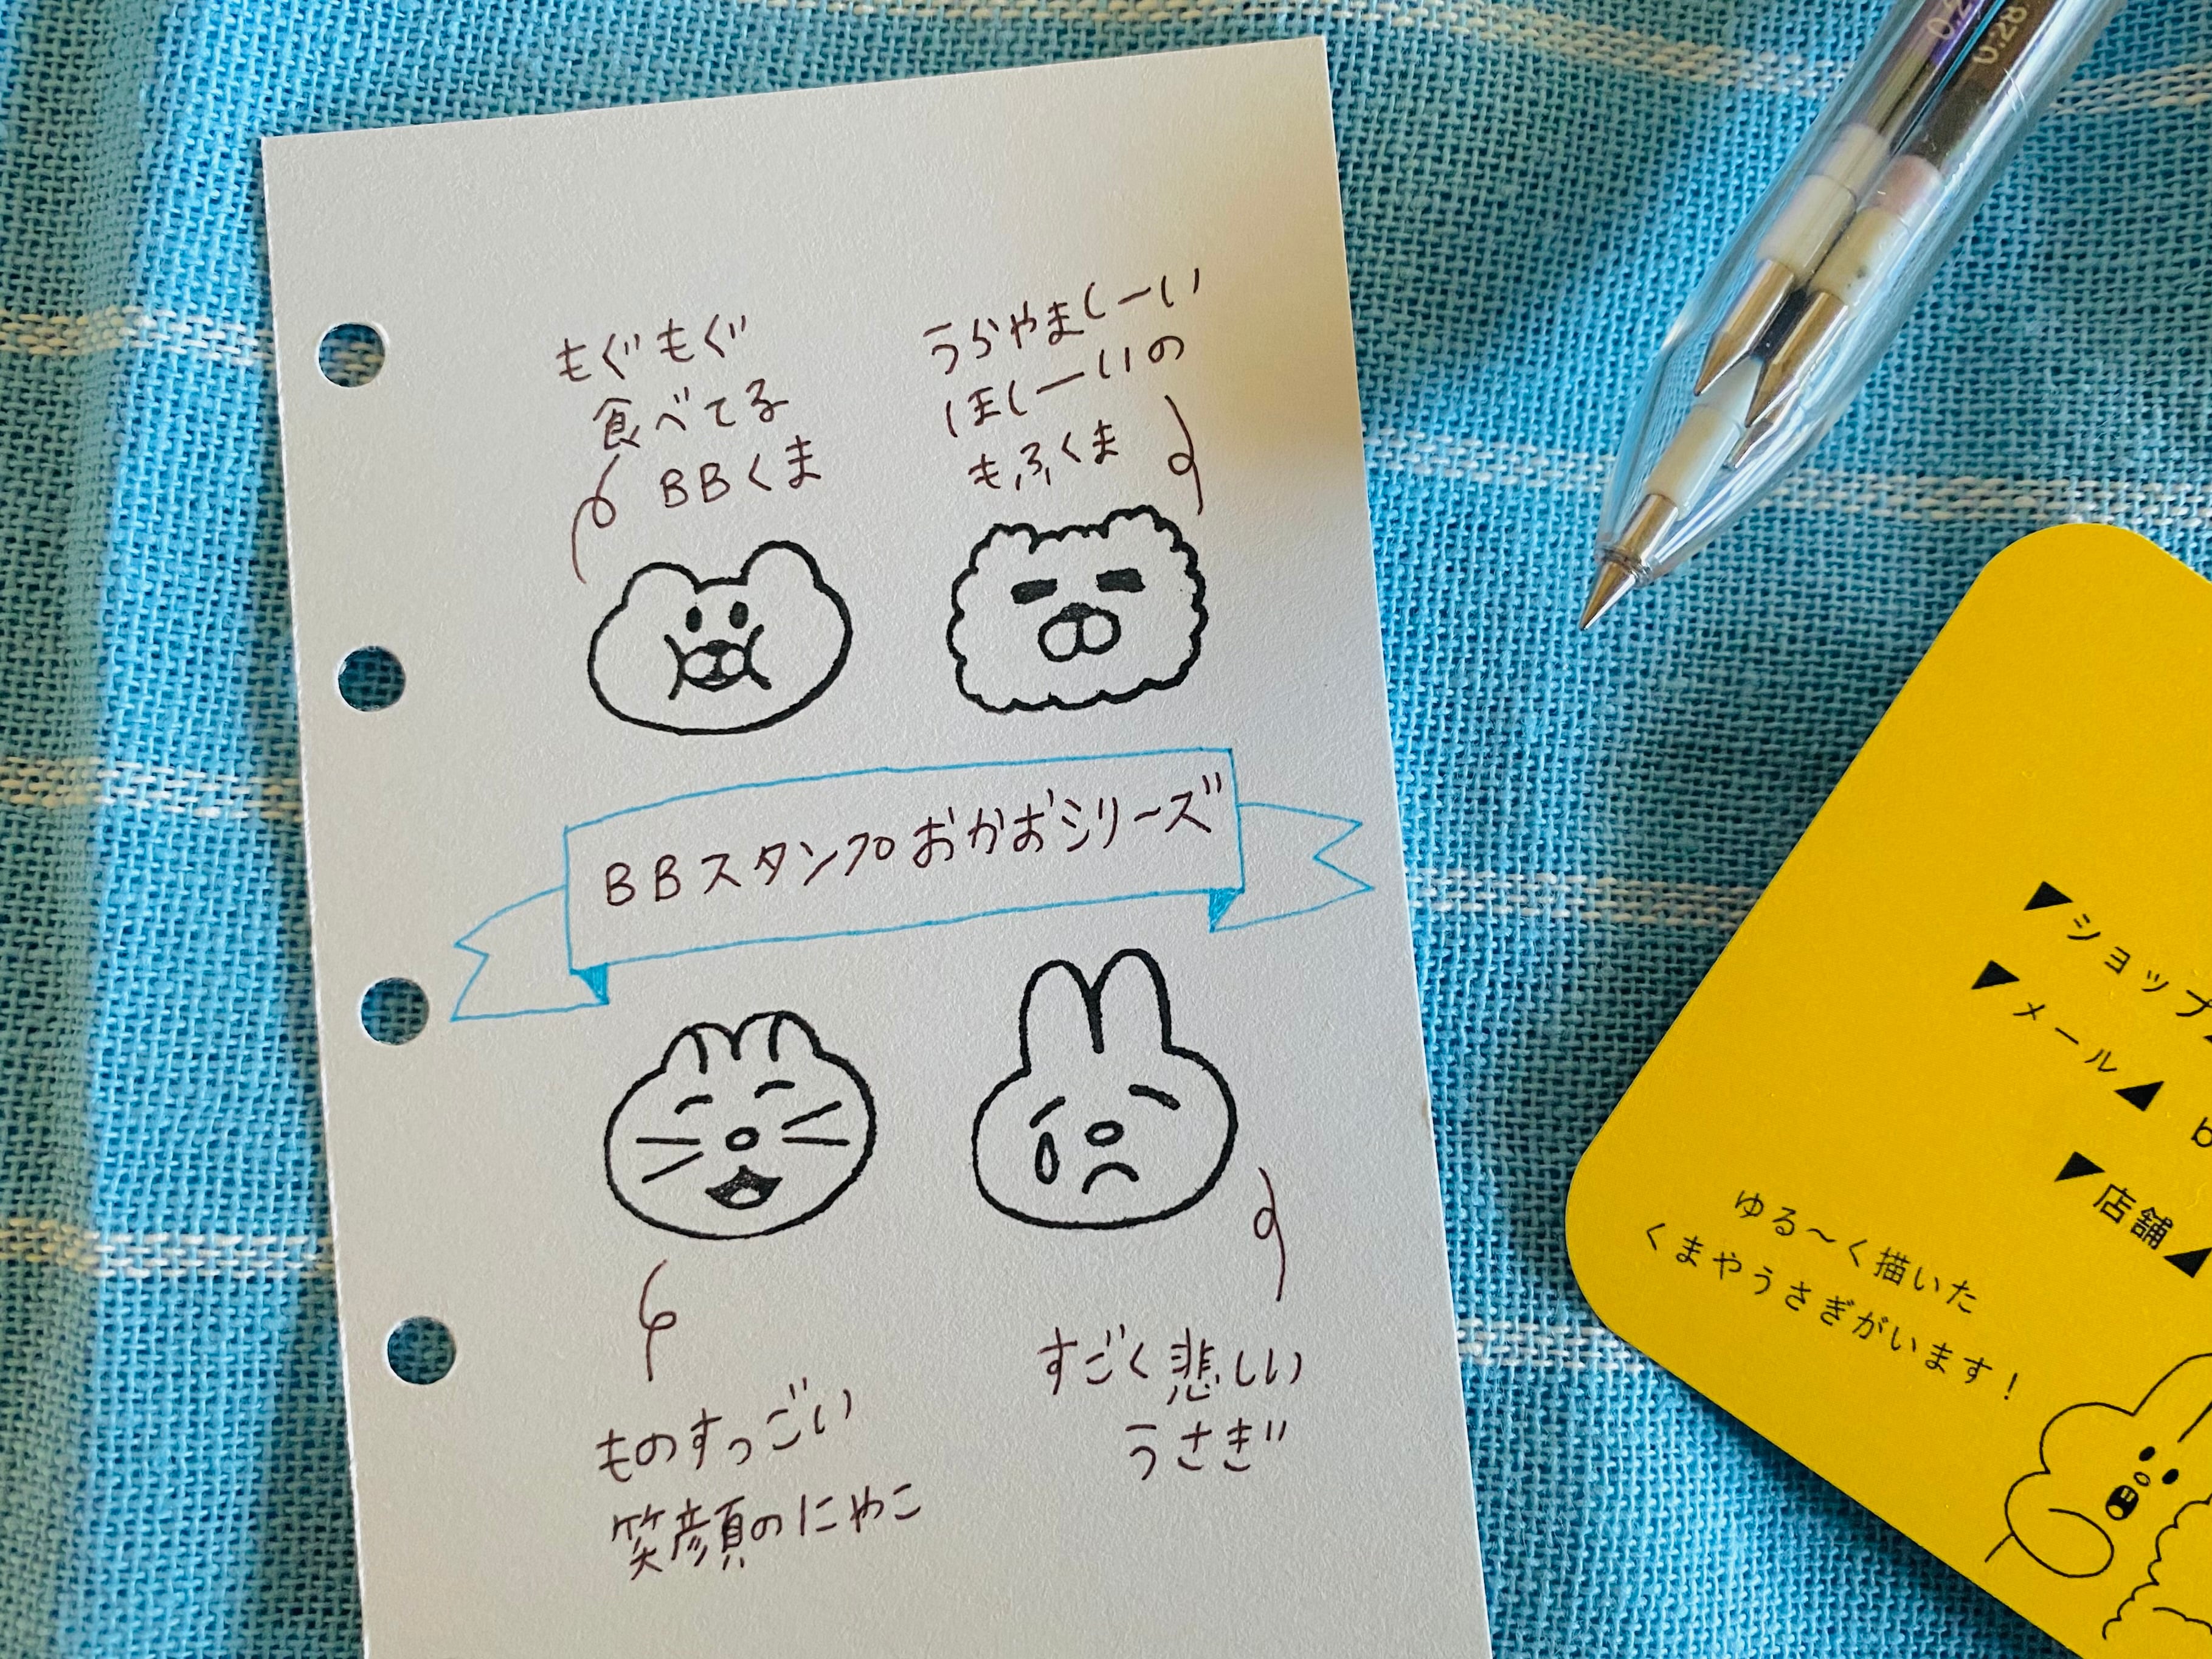 もぐもぐ
食べてる
BBくま
うらやましーい
ほしーいの
もふくま
BBスタンプおかおシリーズ
ものすっごい
笑顔のにゃこ
すごく悲しい
うさぎ
0.28
◤ショップ
◤メール◢
◤店舗◢
ゆる〜く描いた
くまやうさぎがいます！